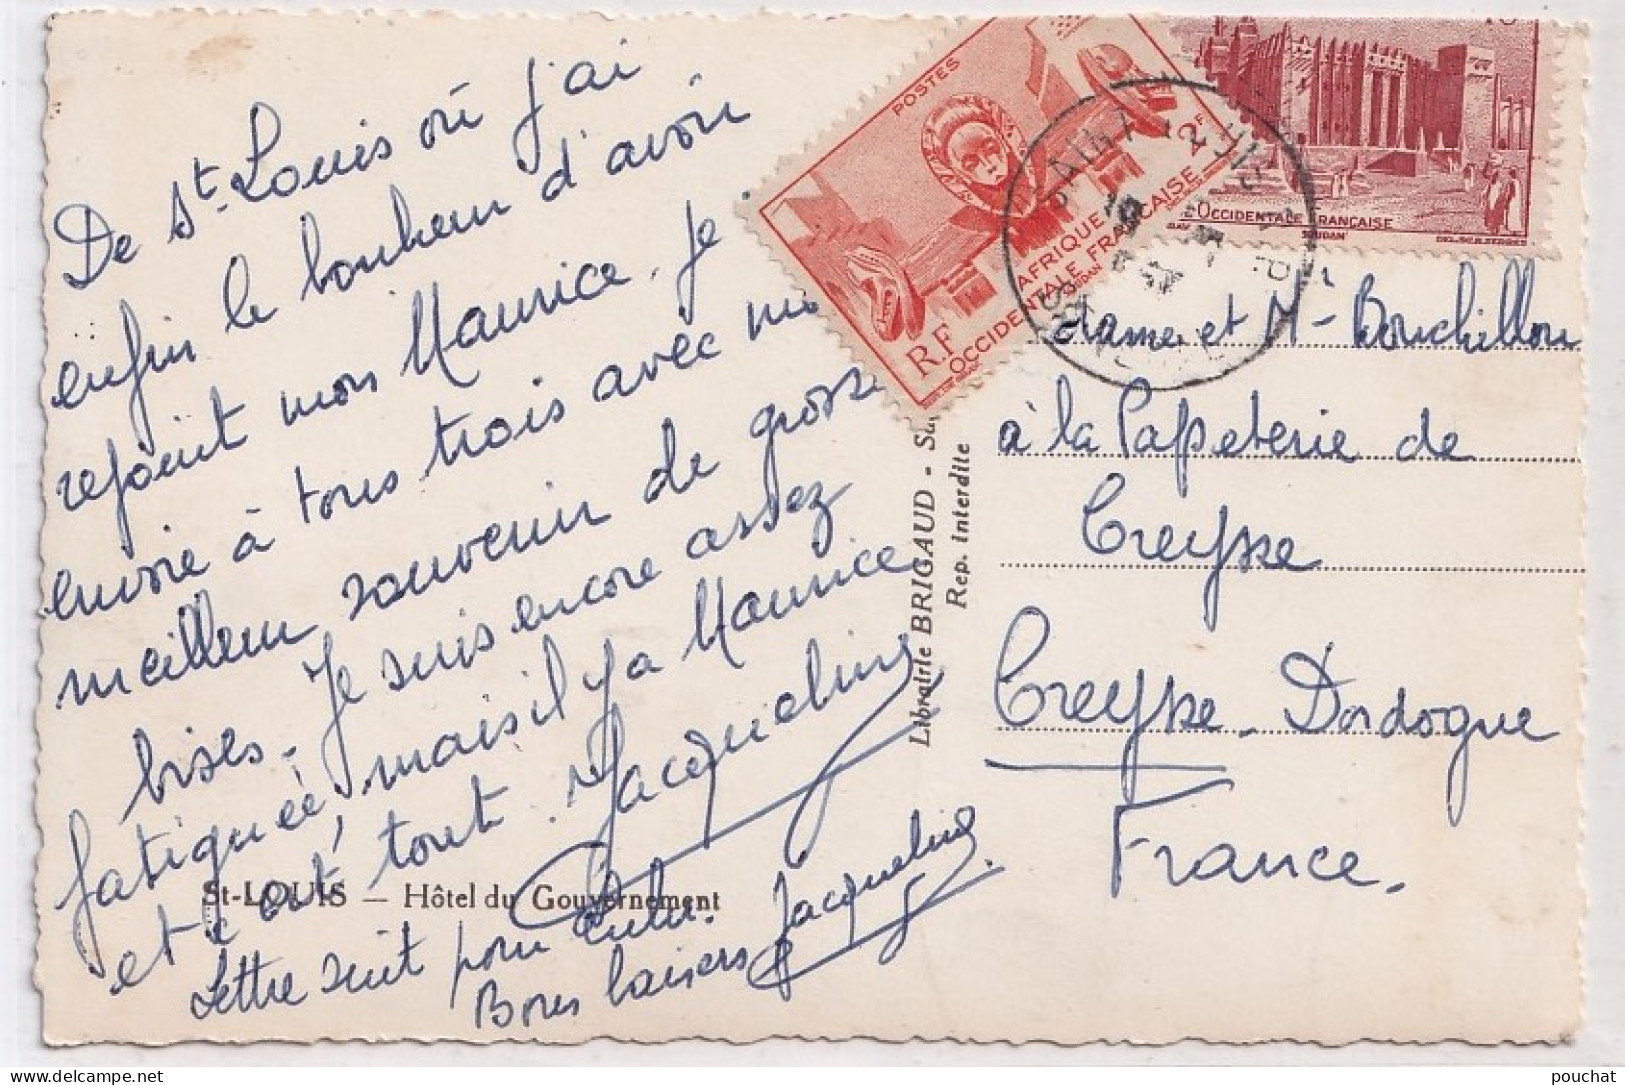 De St. Louis où j'ai
enfin le bonheur d'avoir
rejoint mon Maurice. Je
envoie à tous trois avec mon
meilleur souvenir de grosses
bises. Je suis encore assez
fatiguée, mais il y a Maurice
et c'est tout. Jacqueline
Lettre suit pour Lulu.
Bons baisers Jacqueline
St-LOUIS — Hôtel du Gouvernement
Librairie BRIGAUD - Sa
Rep. interdite
POSTES
2F
AFRIQUE
OCCIDENTALE FRANÇAISE
SOUDAN
R.F
OCCIDENTALE FRANÇAISE
SOUDAN
SAINT-LOUIS R.P.
SENEGAL
Madame et Mr Bouchillou
à la Papeterie de
Creysse
Creysse - Dordogne
France.
pouchat